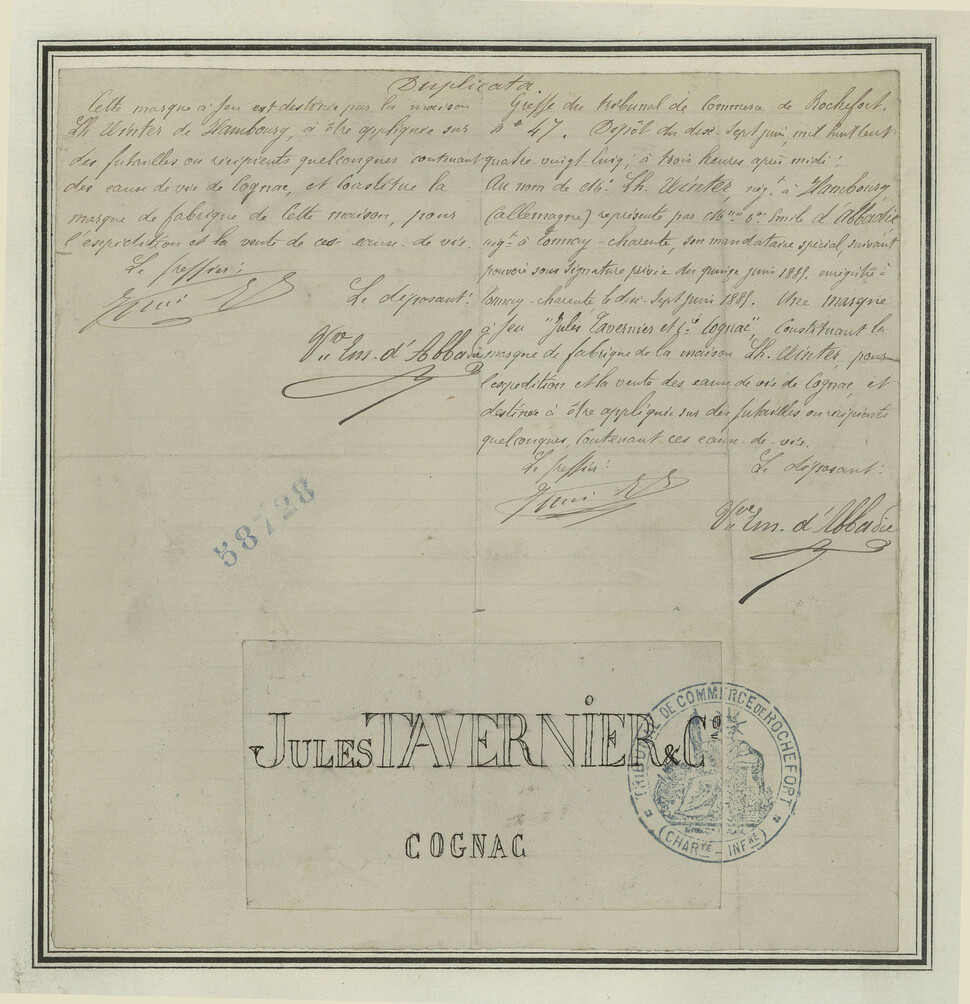 Duplicata.
Cette marque à feu est destinée par la maison
Th Winter de Hambourg, à être appliquée sur
des futailles ou récipients quelconques contenant
des eaux de vie de Cognac, et constitue la
marque de fabrique de cette maison, pour
l'expédition et la vente de ces eaux-de-vie.
Le greffier:
Le déposant:
Vve Em. d'Abbadie
Greffe du tribunal de Commerce de Rochefort.
n° 47. Dépôt du dix-sept juin, mil huit cent
quatre-vingt-cinq, à trois heures après midi:
Au nom de Mr. Th. Winter, négt. à Hambourg
(allemagne) représenté par Mme Vve Emile d'Abbadie
négt. à Tonnay-charente, son mandataire spécial, suivant
pouvoir sous signature privée du quinze juin 1885. enregistré à
Tonnay-charente le dix-sept juin 1885. Une marque
à feu "Jules Tavernier et Cie Cognac", constituant la
marque de fabrique de la maison Th. Winter, pour
l'expédition et la vente des eaux de vie de Cognac, et
destinée à être appliquée sur des futailles ou récipients
quelconques, contenant ces eaux-de-vie.
Le greffier:
Le déposant:
Vve Em. d'Abbadie
58728
JULES TAVERNIER & Co
COGNAC
TRIBUNAL DE COMMERCE DE ROCHEFORT
(CHARTE - INFRE)